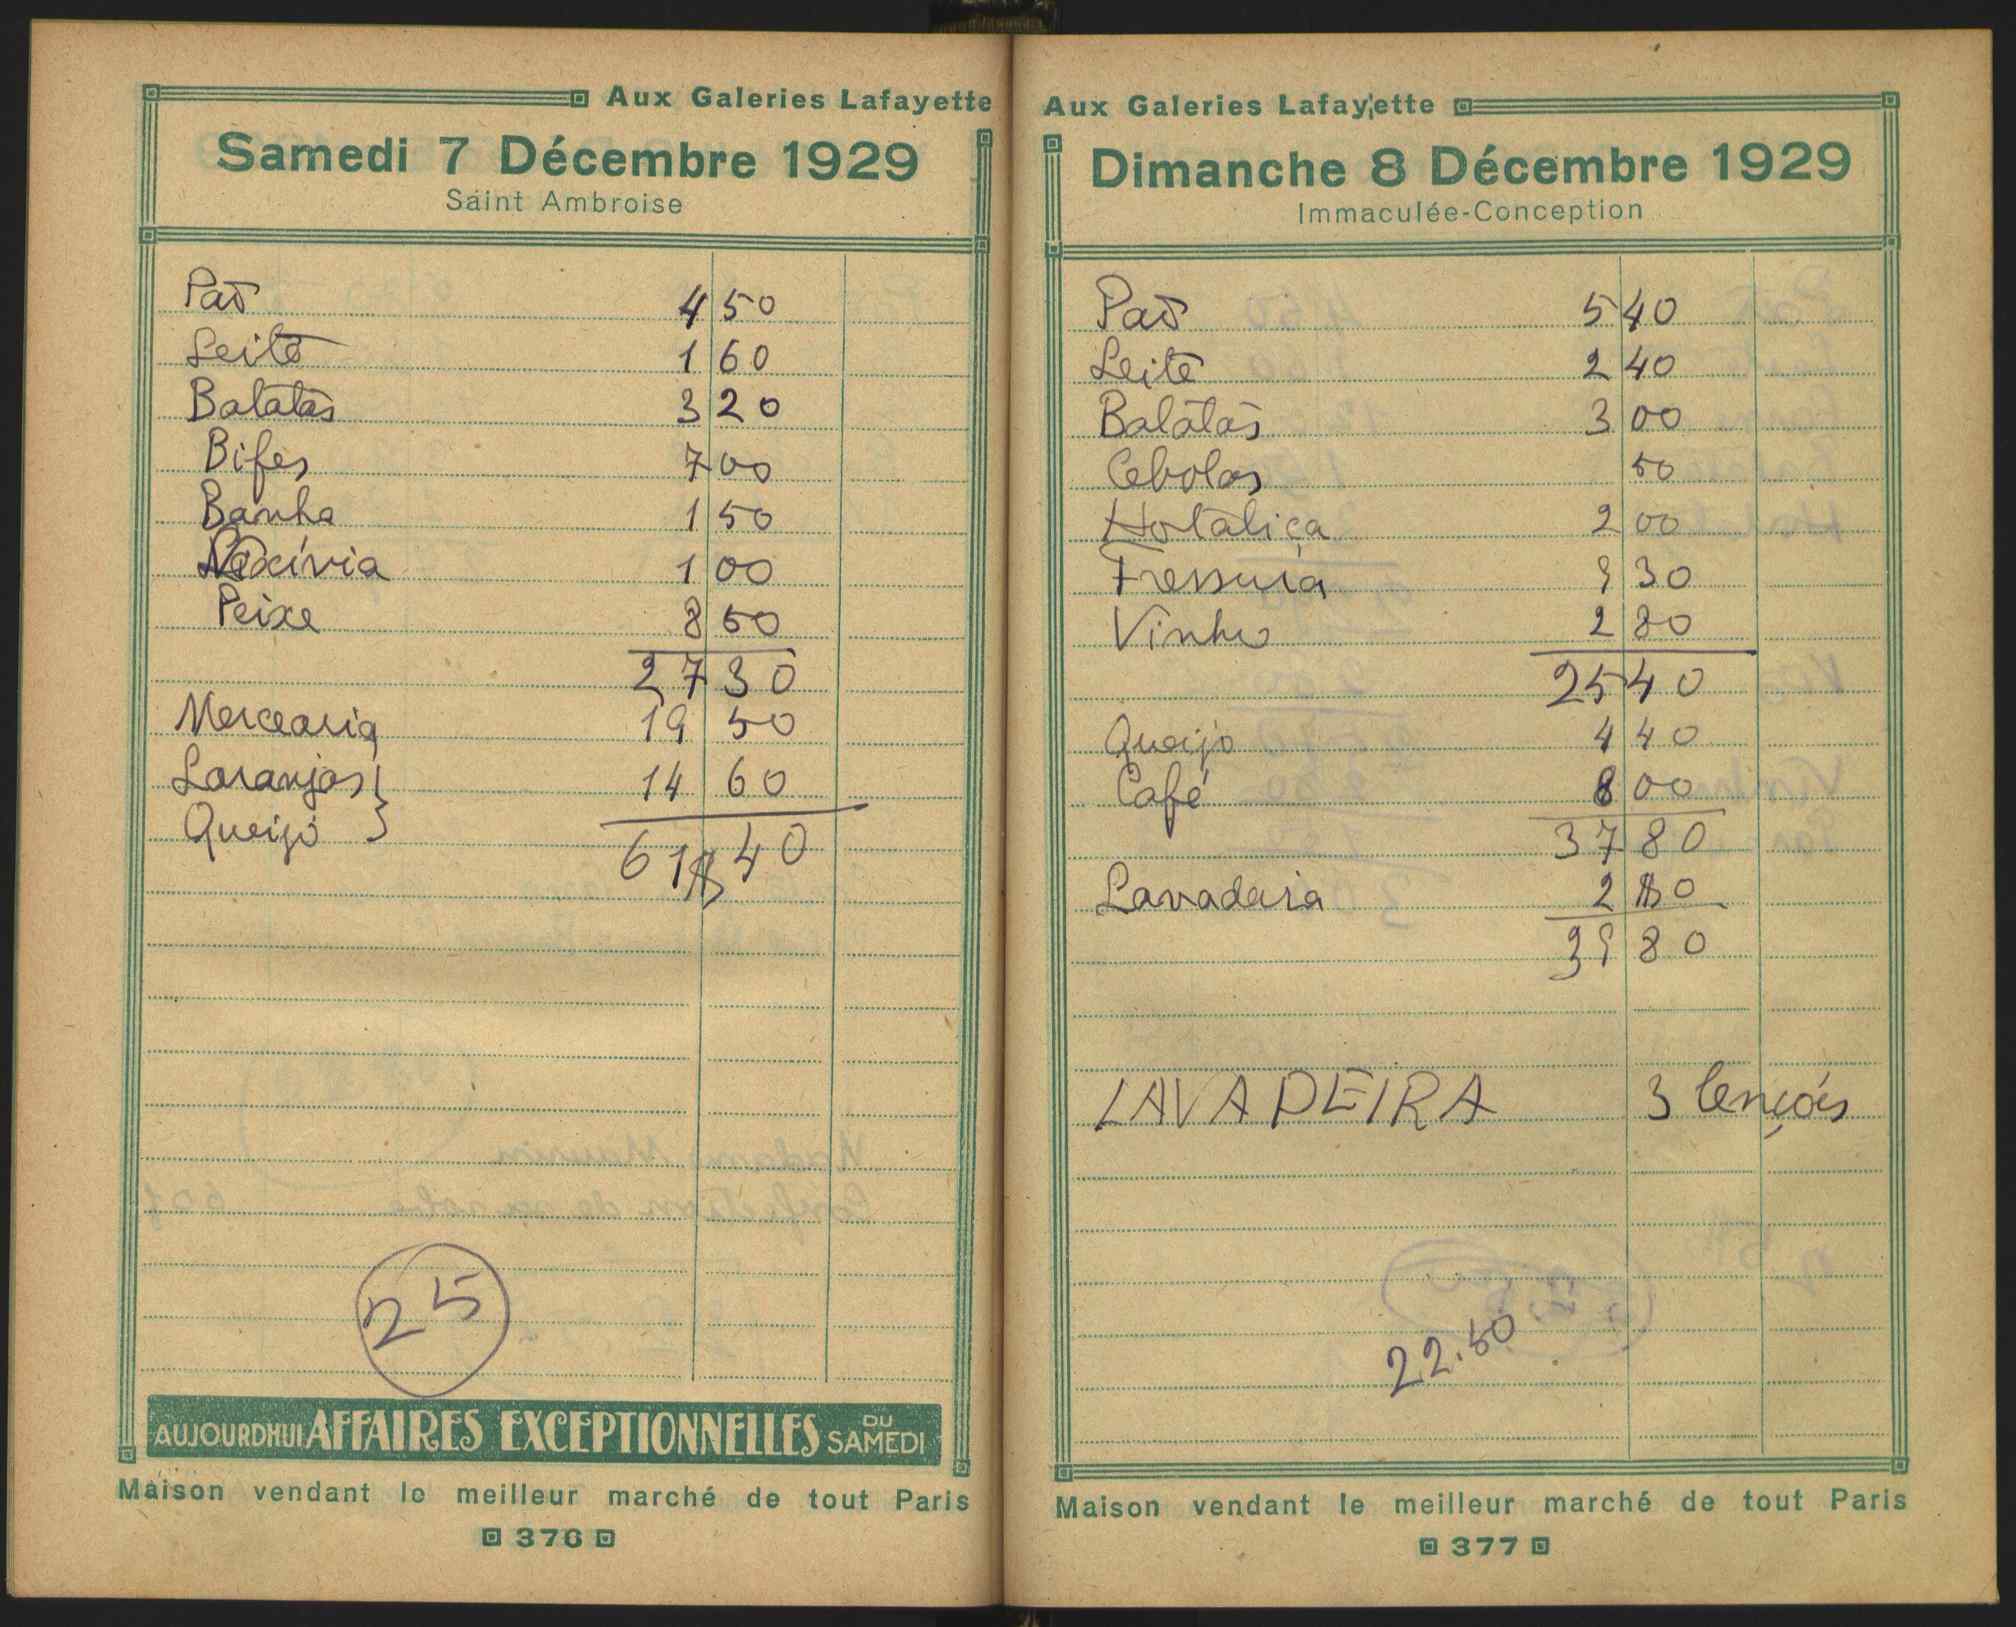 Aux Galeries Lafayette
Samedi 7 Décembre 1929
Saint Ambroise
Pão 4 50
Leite 1 60
Batatas 3 20
Bifes 7 00
Banha 1 50
Lixívia 1 00
Peixe 8 50
27 30
Mercearia 19 50
Laranjas } 14 60
Queijo
61$40
25
AUJOURDHUI AFFAIRES EXCEPTIONNELLES DU SAMEDI
Maison vendant le meilleur marché de tout Paris
376
Aux Galeries Lafayette
Dimanche 8 Décembre 1929
Immaculée-Conception
Pão 5 40
Leite 2 40
Batatas 3 00
Cebolas 50
Hortaliça 2 00
Fressura 9 30
Vinho 2 80
25 40
Queijo 4 40
Café 8 00
37 80
Lavadeira 2
39 80
LAVADEIRA 3 lençóis
22.50
Maison vendant le meilleur marché de tout Paris
377